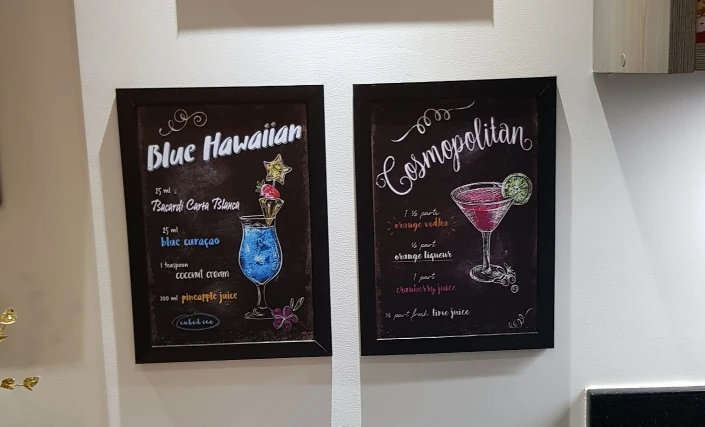 Blue Hawaiian
25 ml
Bacardi Carta Blanca
25 ml
blue curaçao
1 teaspoon
coconut cream
100 ml pineapple juice
cubed ice
Cosmopolitan
1 ½ parts
orange vodka
½ part
orange liqueur
1 part
cranberry juice
part fresh lime juice